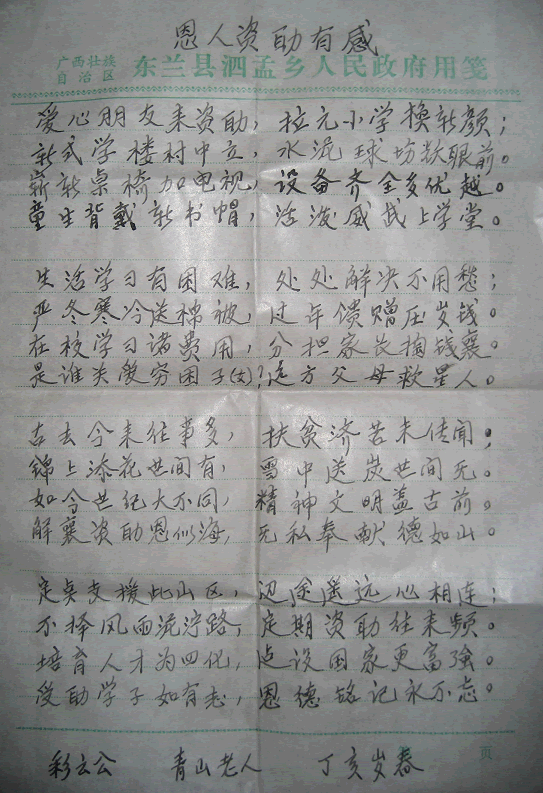 恩人资助有感
广西壮族
自治区
东兰县泗孟乡人民政府用笺
爱心朋友来资助，拉元小学换新颜；
新式学楼村中立，水泥球坊数眼前。
崭新桌椅加电视，设备齐全多优越。
童生背戴新书帽，活泼威武上学堂。
生活学习有困难，处处解决不用愁；
严冬寒冷送棉被，过年馈赠压岁钱。
在校学习诸费用，分担家长掏钱襄。
是谁关爱穷困子(女)？远方父母救星人。
古去今来往事多，扶贫济苦未传闻；
锦上添花世间有，雪中送炭世间无。
如今世纪大不同，精神文明盖古前。
解襄资助恩似海，无私奉献德如山。
定点支援此山区，边途遥远心相连；
不择风雨流泞路，定期资助往来频。
培育人才为四化，点设国家更富强。
受助学子如有志，恩德铭记永不忘。
页
彩云公 青山老人 丁亥岁春